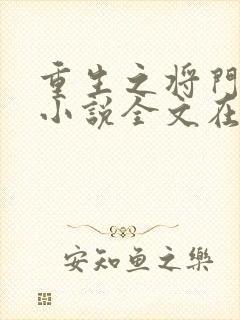 重生之将门
小说全文在
安知鱼之乐